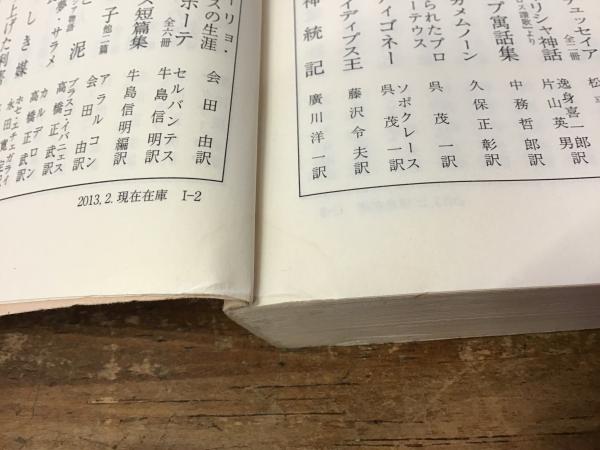 ュッセイア 全二冊 松平
リシャ神話
ロス讃歌より
逸身喜一郎
片山英男訳
プ寓話集 中務哲郎訳
カメムノーン 久保正彰訳
られたプロ
ーテウス 呉茂一訳
ィゴネー ソポクレース
呉茂一訳
イディプス王 藤沢令夫訳
神統記 廣川洋一訳
ーリョ・
スの生涯 会田由訳
ホーテ 全六冊 セルバンテス
牛島信明訳
ス短篇集 牛島信明編訳
子 他二篇 アラルコン
会田由訳
泥 ブラスコ・イバニェス
高橋正武訳
夢・サラメ カルデロン
高橋正武訳
しき媒 ホセ・エチェガライ
永田寛定訳
上げた利害
2013.2.現在在庫 I-2